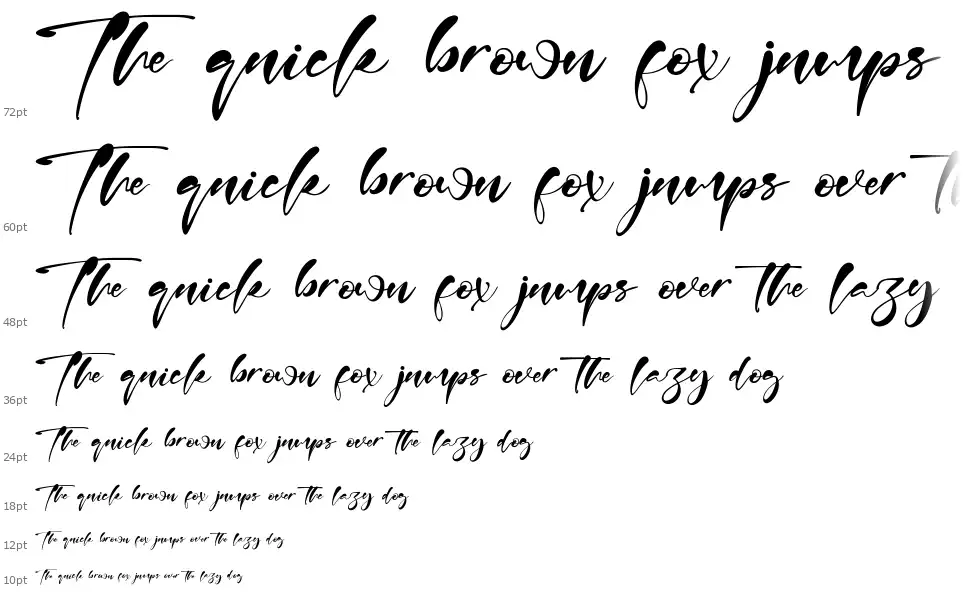 The quick brown fox jumps
72pt
The quick brown fox jumps over Th
60pt
The quick brown fox jumps over the lazy
48pt
The quick brown fox jumps over the lazy dog
36pt
The quick brown fox jumps over the lazy dog
24pt
The quick brown fox jumps over the lazy dog
18pt
The quick brown fox jumps over the lazy dog
12pt
The quick brown fox jumps over the lazy dog
10pt